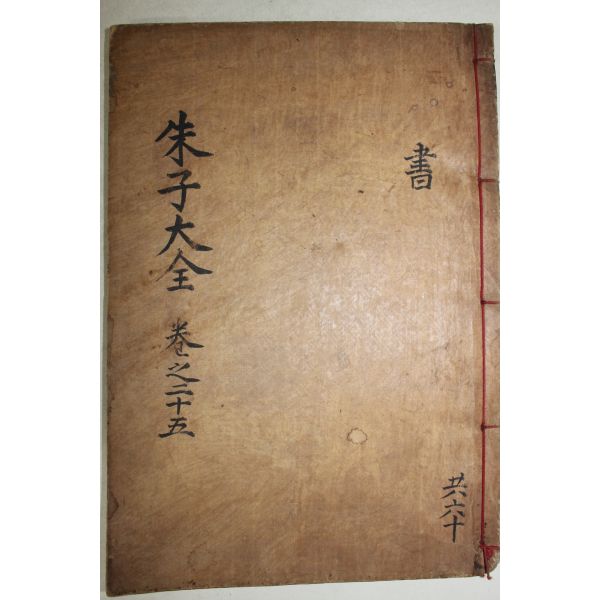 書
共六十
朱子大全 卷之二十五